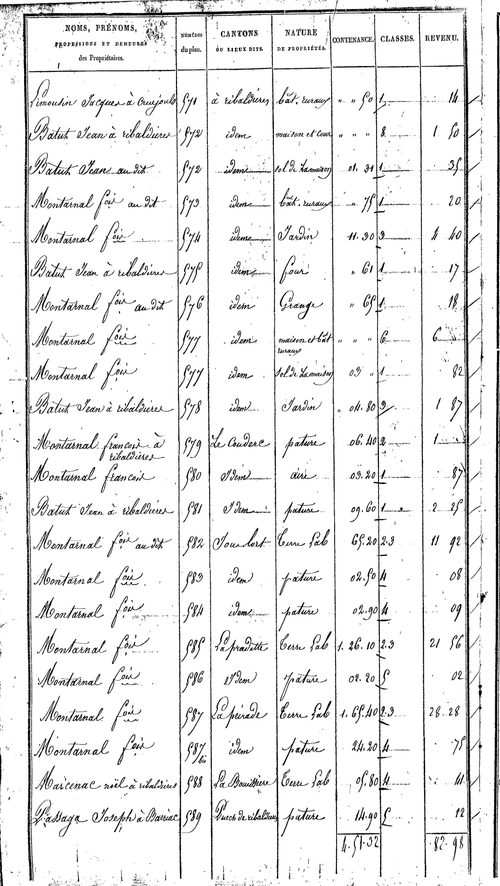 NOMS, PRÉNOMS, PROFESSIONS ET DEMEURES des Propriétaires. NUMÉROS du plan. CANTONS OU LIEUX DITS. NATURE DE PROPRIÉTÉS. CONTENANCE. CLASSES. REVENU.
Limousin Jacques à Cruejouls 571 à ribaldières bât. ruraux " " 50 1 14
Batut Jean à ribaldières 572 idem maison et cour " " " 8 1 50
Batut Jean au dit 572 idem sol de la maison 01. 31 1 35
Montarnal foix au dit 573 idem bât. ruraux " 75 1 20
Montarnal foix 574 idem Jardin 11. 30 3 4 40
Batut Jean à ribaldières 575 idem four " 61 1 17
Montarnal foix au dit 576 idem Grange " 65 1 18
Montarnal foix 577 idem maison et bât ruraux " " " 6 6
Montarnal foix 577 idem sol de la maison 03 " 1 82
Batut Jean à ribaldières 578 idem Jardin " 04. 80 3 1 87
Montarnal francois à ribaldières 579 Le Couderc pature 06. 40 2 1
Montarnal francois 580 Idem aire 03. 20 1 87
Batut Jean à ribaldières 581 Idem pature 09. 60 1 2 25
Montarnal foix au dit 582 Sous lort Terre Lab 65. 20 2.3 11 92
Montarnal foix 583 idem pature 02. 50 4 08
Montarnal foix 584 idem pature 02. 90 4 09
Montarnal foix 585 La pradette Terre Lab 1. 26. 10 2.3 21 56
Montarnal foix 586 Idem pature 02. 20 5 02
Montarnal foix 587 La peirade Terre Lab 1. 65. 40 2.3 28 28
Montarnal foix 587 bis idem pature 24. 20 4 75
Marcenac noël à ribaldières 588 La Bouissiere Terre Lab 05. 80 4 41
Passaga Joseph à Barriac 589 de ribaldières pature 14. 90 5 12
4. 51. 32 82. 98